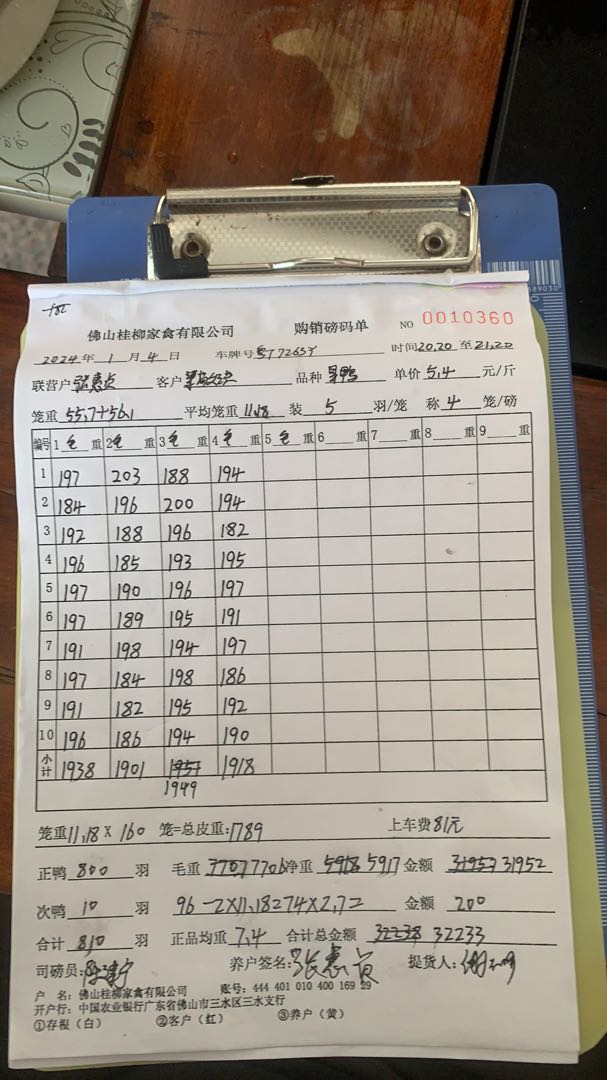 佛山桂柳家禽有限公司 购销磅码单 NO 0010360
2024年 1月 4日 车牌号 时间20,20 至21,20
联营户 张惠贞 客户 品种 单价5,4 元/斤
笼重 55,7+56,1 平均笼重 11,18 装 5 羽/笼 称 4 笼/磅
编号 1 毛 重 2 毛 重 3 毛 重 4 毛 重 5 毛 重 6 重 7 重 8 重 9 重
1 197 203 188 194
2 184 196 200 194
3 192 188 196 182
4 196 185 193 195
5 197 190 196 197
6 197 189 195 191
7 191 198 194 197
8 197 184 198 186
9 191 182 195 192
10 196 186 194 190
小计 1938 1901 1957 1918
1949
笼重11,18 X 160 笼=总皮重:1789 上车费 81元
正鸭 800 羽 毛重 7707 7706 净重 5918 5917 金额 31957 31952
次鸭 10 羽 96-2X11,18=74X2,7= 金额 200
合计 810 羽 正品均重 7,4 合计总金额 32238 32233
司磅员: 养户签名:张惠贞 提货人:
户 名:佛山桂柳家禽有限公司 账号:444 401 010 400 169 29
开户行:中国农业银行广东省佛山市三水区三水支行
①存根(白) ②客户(红) ③养户(黄)